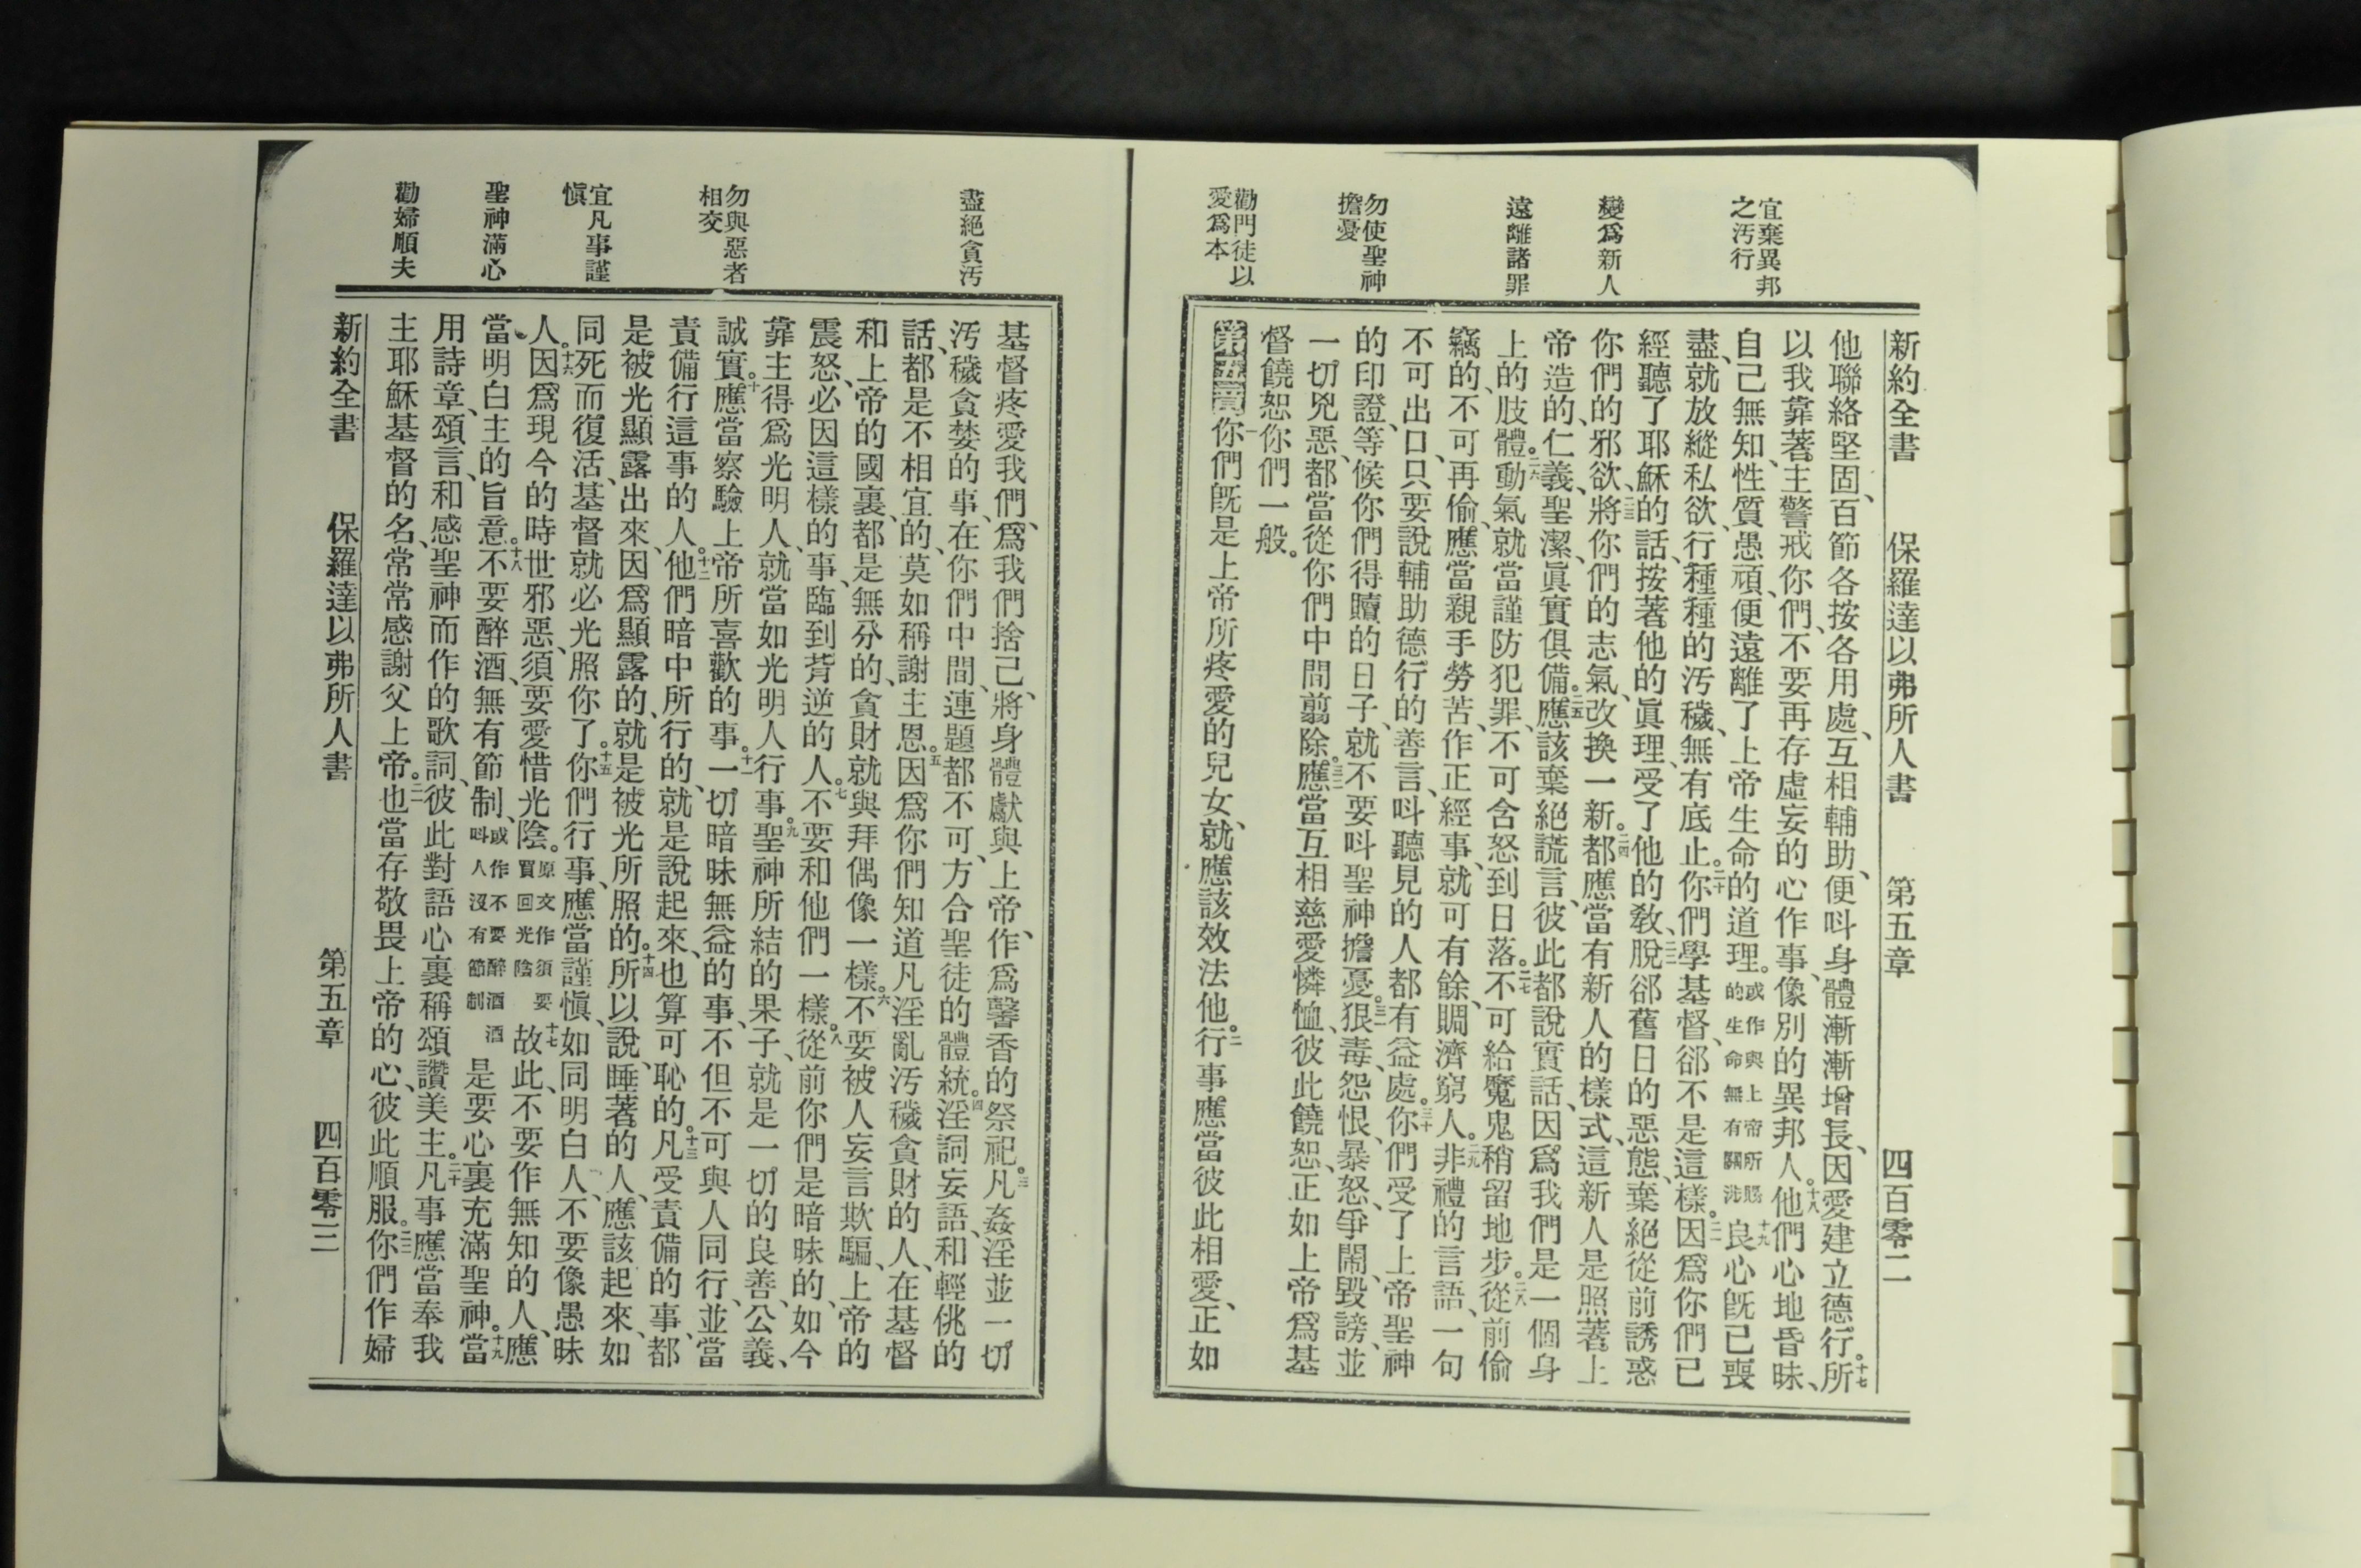 宜棄異邦
之汚行
變爲新人
遠離諸罪
勿使聖神
擔憂
勸門徒以
愛爲本
新約全書 保羅達以弗所人書 第五章 四百零二
他聯絡堅固、百節各按各用處、互相輔助、便呌身體漸漸增長、因愛建立德行。十七所
以我靠著主警戒你們、不要再存虛妄的心作事、像別的異邦人。十八他們心地昏昧、
自己無知、性質愚頑、便遠離了上帝生命的道理。或作與上帝所賜的生命無有關涉十九良心旣已喪
盡、就放縱私欲、行種種的汚穢、無有底止。二十你們學基督、郤不是這樣。二一因爲你們已
經聽了耶穌的話、按著他的眞理、受了他的敎、二二脫郤舊日的惡態、棄絕從前誘惑
你們的邪欲、二三將你們的志氣、改換一新。二四都應當有新人的樣式、這新人是照著上
帝造的、仁義、聖潔、眞實俱備。二五應該棄絕謊言、彼此都說實話、因爲我們是一個身
上的肢體。二六動氣、就當謹防犯罪、不可含怒到日落。二七不可給魔鬼稍留地步。二八從前偷
竊的、不可再偷、應當親手勞苦、作正經事、就可有餘、賙濟窮人。二九非禮的言語、一句
不可出口、只要說輔助德行的善言、呌聽見的人都有益處。三十你們受了上帝聖神
的印證、等候你們得贖的日子、就不要呌聖神擔憂。三一狠毒、怨恨、暴怒、爭鬧、毀謗、並
一切兇惡、都當從你們中間翦除。三二應當互相慈愛憐恤、彼此饒恕、正如上帝爲基
督饒恕你們一般。
第五章一你們旣是上帝所疼愛的兒女、就應該效法他。二行事應當彼此相愛、正如
盡絕貪汚
勿與惡者
相交
宜凡事謹
愼
聖神滿心
勸婦順夫
基督疼愛我們、爲我們捨己、將身體獻與上帝、作爲馨香的祭祀。三凡姦淫並一切
汚穢貪婪的事、在你們中間、連題都不可、方合聖徒的體統。四淫詞妄語、和輕佻的
話、都是不相宜的、莫如稱謝主恩。五因爲你們知道凡淫亂汚穢貪財的人、在基督
和上帝的國裏、都是無分的、貪財就與拜偶像一樣。六不要被人妄言欺騙、上帝的
震怒、必因這樣的事、臨到背逆的人。七不要和他們一樣。八從前你們是暗昧的、如今
靠主得爲光明人、就當如光明人行事。九聖神所結的果子、就是一切的良善、公義、
誠實。十應當察驗上帝所喜歡的事。十一一切暗昧無益的事、不但不可與人同行、並當
責備行這事的人。十二他們暗中所行的、就是說起來、也算可恥的。十三凡受責備的事、都
是被光顯露出來、因爲顯露的、就是被光所照的。十四所以說、睡著的人、應該起來、如
同死而復活、基督就必光照你了。十五你們行事、應當謹愼、如同明白人、不要像愚昧
人。十六因爲現今的時世邪惡、須要愛惜光陰。原文作須要買回光陰十七故此、不要作無知的人、應
當明白主的旨意。十八不要醉酒、無有節制、或作不要醉酒酒呌人沒有節制是要心裏充滿聖神。十九當
用詩章、頌言、和感聖神而作的歌詞、彼此對語、心裏稱頌讚美主。二十凡事應當奉我
主耶穌基督的名、常常感謝父上帝。二一也當存敬畏上帝的心、彼此順服。二二你們作婦
新約全書 保羅達以弗所人書 第五章 四百零三